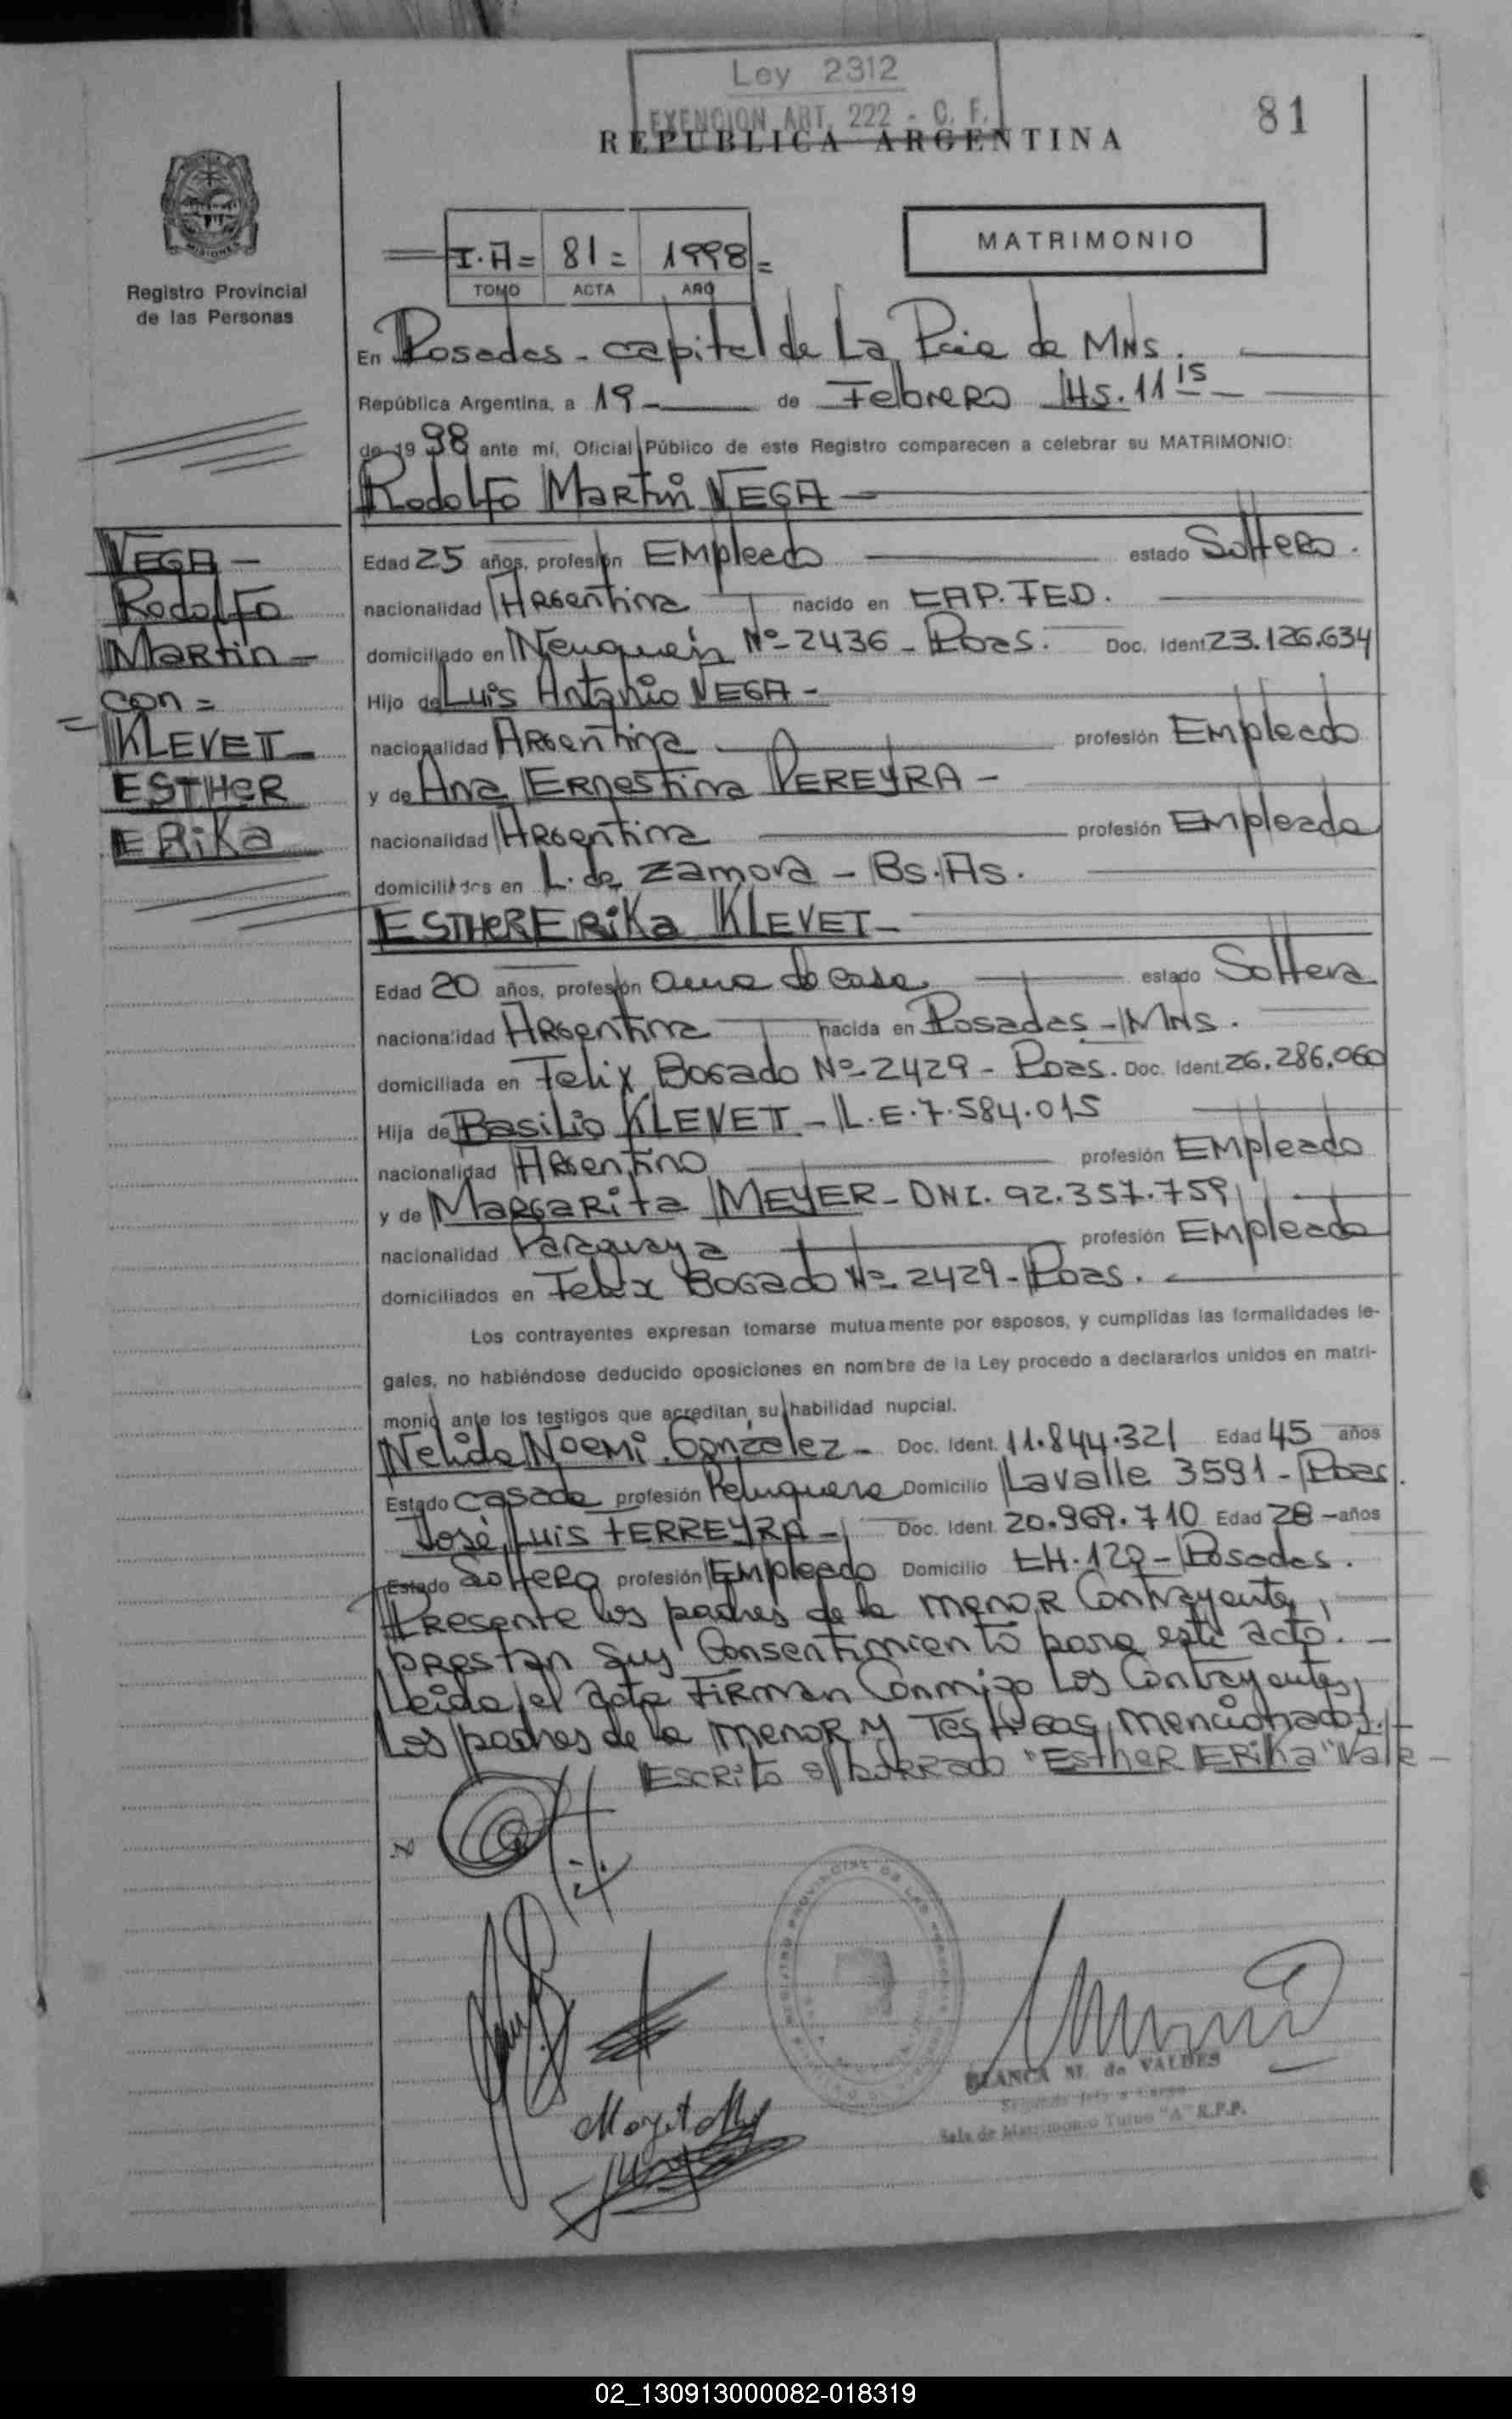 Ley 2312
EXENCION ART. 222 - C. F.
REPUBLICA ARGENTINA
81
MISIONES
Registro Provincial
de las Personas
I·A= 81= 1998=
TOMO ACTA AÑO
MATRIMONIO
En Posadas - capital de La Pcia de MNs.
República Argentina, a 19 - de Febrero Hs. 11 15
de 1998 ante mí, Oficial Público de este Registro comparecen a celebrar su MATRIMONIO:
Rodolfo Martin VEGA
VEGA -
Rodolfo
Martin -
con =
= KLEVET
ESTHER
ERiKa
Edad 25 años, profesión Empleado estado Soltero.
nacionalidad Argentina nacido en CAP. FED.
domiciliado en Neuquén Nº 2436 - Pdas. Doc. Ident 23.126.634
Hijo de Luis Antonio VEGA -
nacionalidad Argentina profesión Empleado
y de Ana Ernestina PEREYRA -
nacionalidad Argentina profesión Empleada
domiciliados en L. de Zamora - Bs. As.
ESTHER ERiKa KLEVET -
Edad 20 años, profesión ama de casa estado Soltera
nacionalidad Argentina nacida en Posadas - MNs.
domiciliada en Felix Bogado Nº 2429 - Pdas. Doc. Ident. 26.286.060
Hija de Basilio KLEVET - L.E. 7.584.015
nacionalidad Argentino profesión Empleado
y de Margarita MEYER - DNI. 92.357.759
nacionalidad Paraguaya profesión Empleada
domiciliados en Felix Bogado Nº 2429 - Pdas.
Los contrayentes expresan tomarse mutuamente por esposos, y cumplidas las formalidades le-
gales, no habiéndose deducido oposiciones en nombre de la Ley procedo a declararlos unidos en matri-
monio ante los testigos que acreditan su habilidad nupcial.
Nelida Noemi Gonzalez - Doc. Ident. 11.844.321 Edad 45 años
Estado casada profesión Peluquera Domicilio Lavalle 3591 - Pdas.
José Luis FERREYRA - Doc. Ident. 20.969.710 Edad 28 - años
Estado Soltero profesión Empleado Domicilio CH. 129 - Posadas.
Presente los padres de la menor Contrayente,
prestan sus Consentimiento para este acto. -
Leida el acta Firman Conmigo Los Contrayentes,
Los padres de la menor y Testigos mencionados.
Escrito s/borrado "Esther ERiKa" Vale -
BLANCA M. de VALDES
Segundo Jefe a Cargo
Sala de Matrimonio Turno "A" R.P.P.
02_130913000082-018319